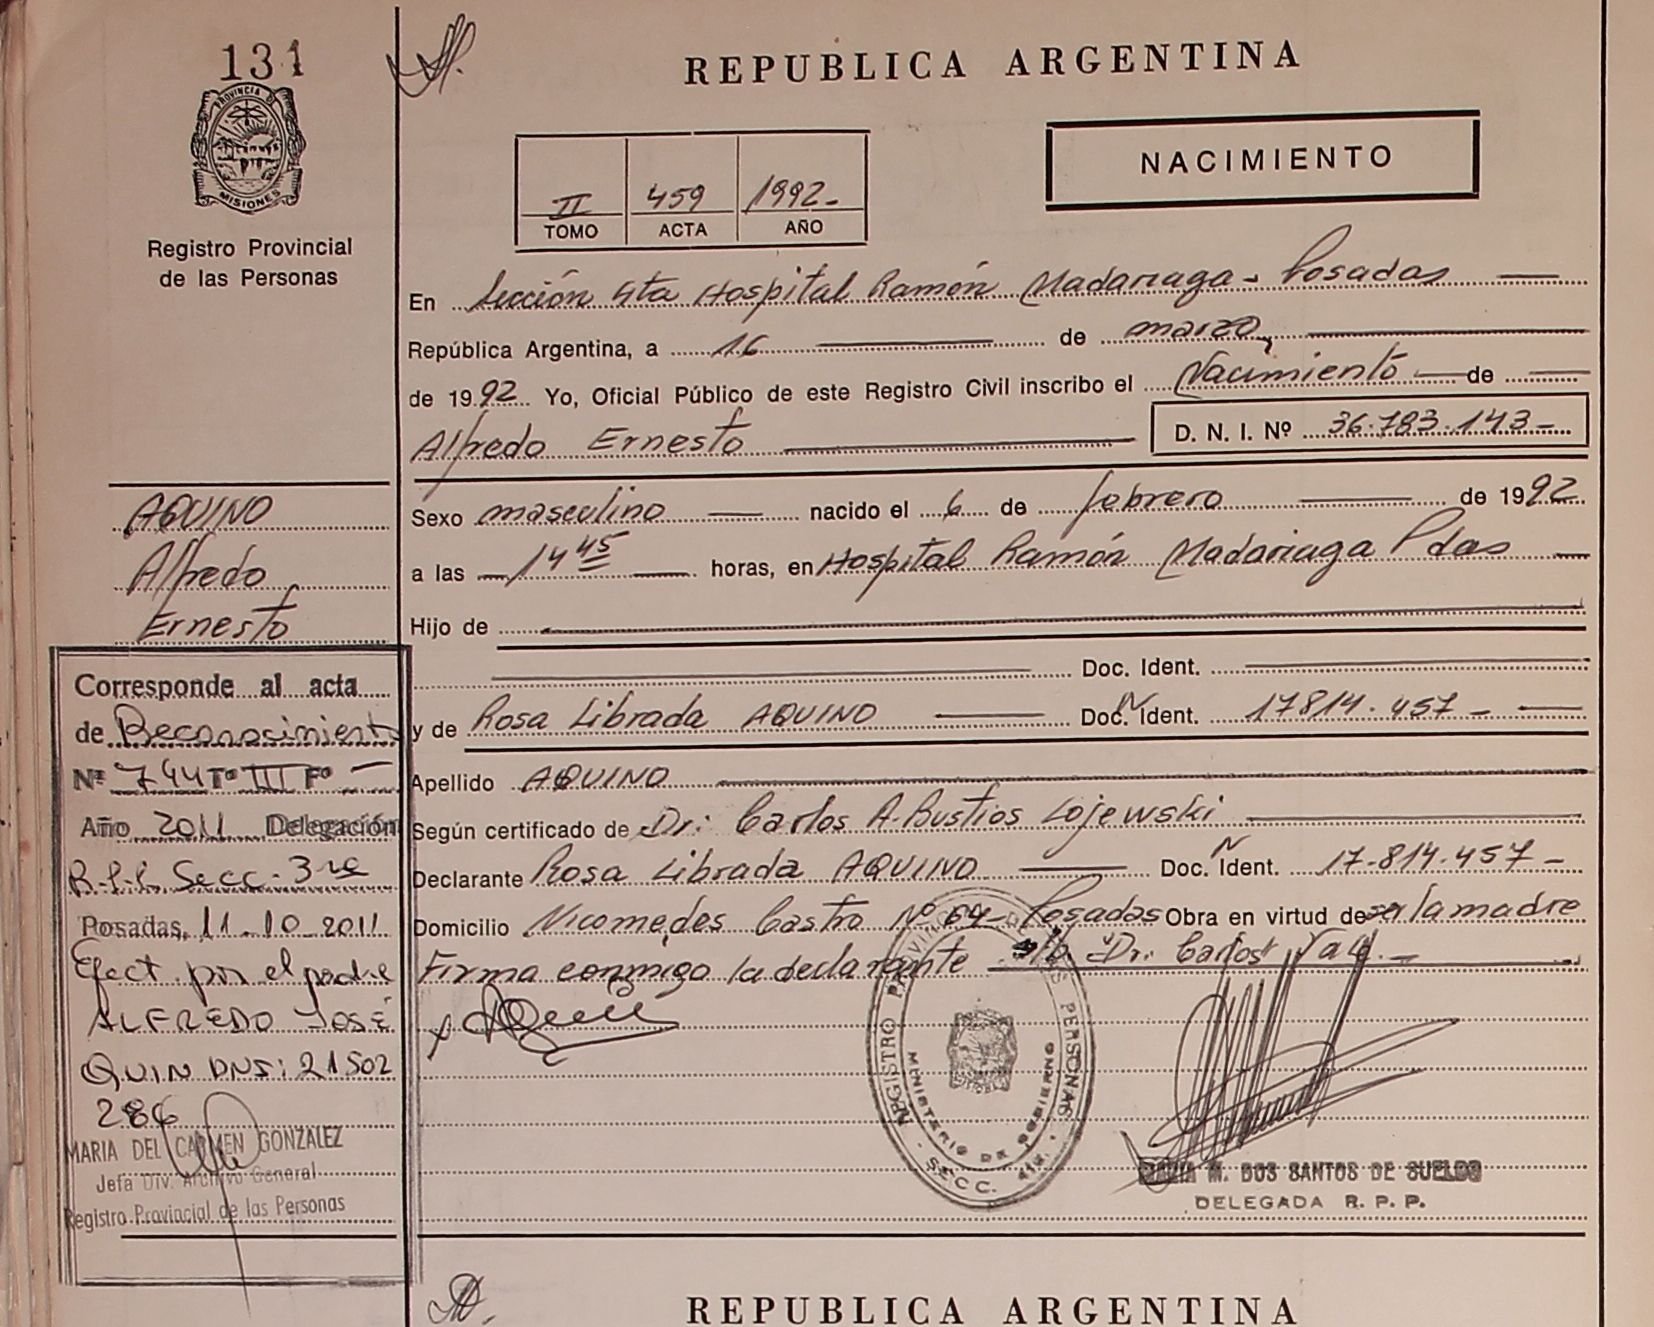 131
PROVINCIA DE
MISIONES
Registro Provincial
de las Personas
REPUBLICA ARGENTINA
NACIMIENTO
II 459 1992-
TOMO ACTA AÑO
En Sección 4ta Hospital Ramón Madariaga - Posadas
República Argentina, a 16 de marzo,
de 1992 Yo, Oficial Público de este Registro Civil inscribo el Nacimiento de
Alfredo Ernesto D. N. I. Nº 36.783.143-
AQUINO
Alfredo
Ernesto
Sexo masculino nacido el 6 de febrero de 1992
a las 14 45 horas, en Hospital Ramón Madariaga Pdas
Hijo de
Doc. Ident.
y de Rosa Librada AQUINO Doc. N Ident. 17814.457-
Apellido AQUINO
Según certificado de Dr: Carlos A. Bustios Lojewski
Declarante Rosa Librada AQUINO Doc. N Ident. 17-814.457-
Domicilio Nicomedes Castro Nº 64- Posadas Obra en virtud de ser la madre
Firma conmigo la declarante Dr. Carlos
Corresponde al acta
de Reconocimiento
Nº 744 Tº III Fº -
Año 2011 Delegación
R.P.P. Secc. 3ra
Posadas, 11.10.2011
Efect. por el padre
ALFREDO JOSÉ
QUIN DNI: 21502
286
MARIA DEL CARMEN GONZALEZ
Jefa Div. Archivo General
Registro Provincial de las Personas
REGISTRO PROVINCIAL DE LAS PERSONAS
MINISTERIO DE GOBIERNO
SECC. 4ta.
M. DOS SANTOS DE SUELDO
DELEGADA R. P. P.
REPUBLICA ARGENTINA